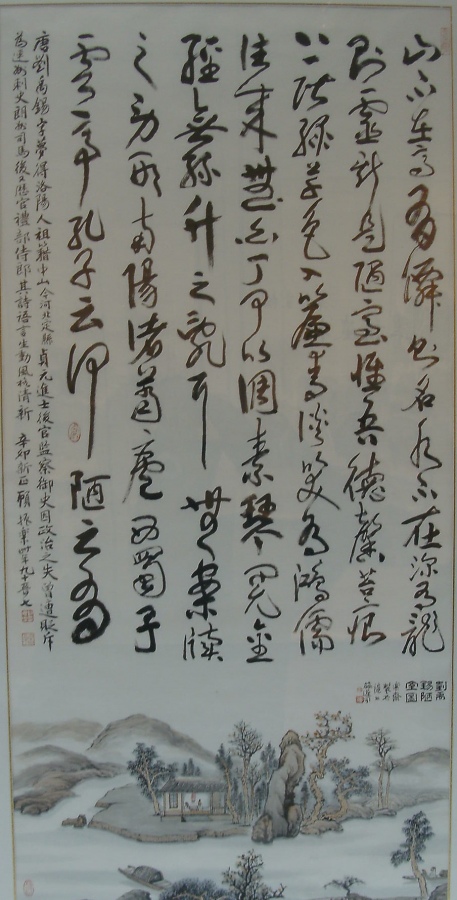 山不在高有僊則名水不在深有龍
則靈斯是陋室惟吾德馨苔痕
上階綠草色入簾青談笑有鴻儒
往來無白丁可以調素琴閱金
經無絲竹之亂耳無案牘
之勞形南陽諸葛廬西蜀子
雲亭孔子云何陋之有
唐劉禹錫字夢得洛陽人祖籍中山今河北定縣貞元進士後官監察御史因政治之失曾遭貶斥
為連州刺史朗州司馬後又歷官禮部侍郎其詩語言生動風格清新 辛卯新正 年九十晉七
劉禹
錫陋
室圖